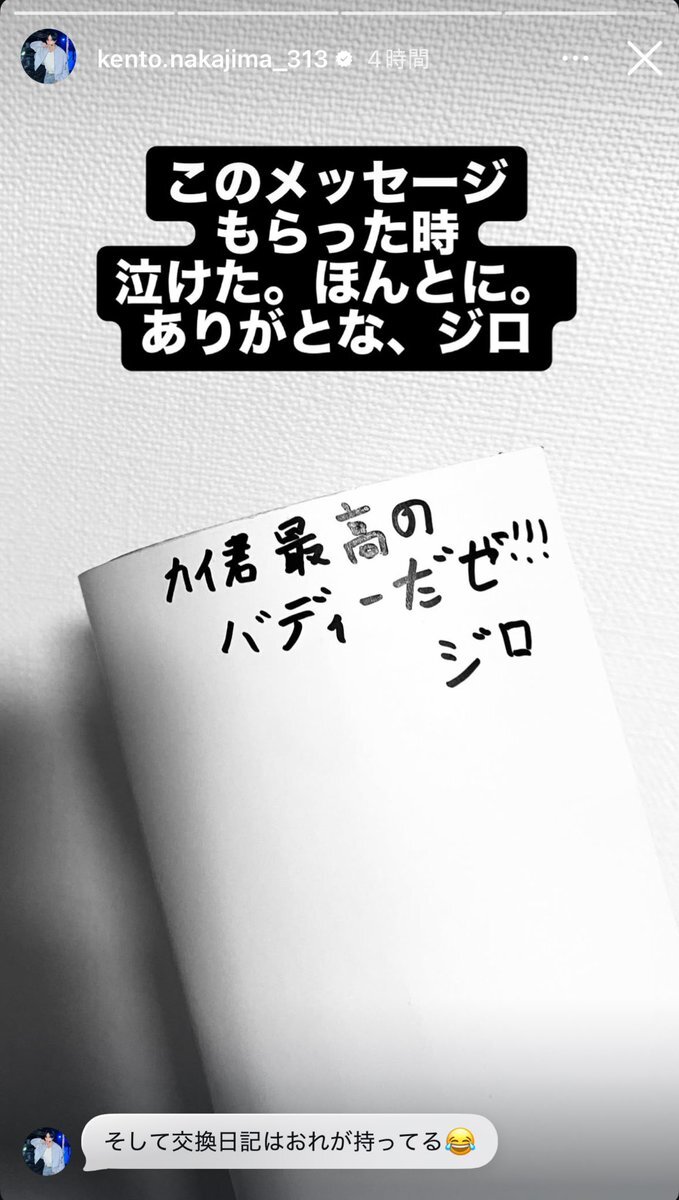 kento.nakajima_313 4時間
このメッセージ
もらった時
泣けた。ほんとに。
ありがとな、ジロ
カイ君最高の
バディーだぜ!!!
ジロ
そして交換日記はおれが持ってる😂